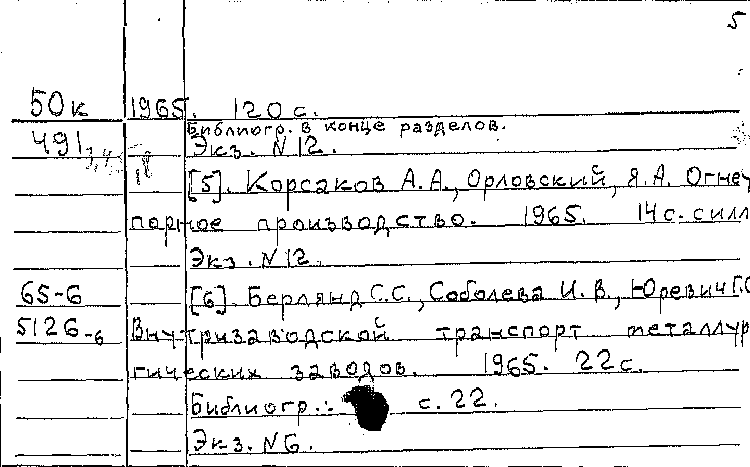 5
50к 1965. 120 с.
Библиогр. в конце разделов.
491 Экз. N 12.
[5]. Корсаков А.А., Орловский, Я.А. Огнеу
порное производство. 1965. 14 с. силл
Экз. N 12.
65-6 [6]. Берлянд С.С., Соболева И.В., Юревич Г.С
5126-6 Внутризаводской транспорт металлур
гических заводов. 1965. 22 с.
Библиогр.: с. 22.
Экз. N 6.